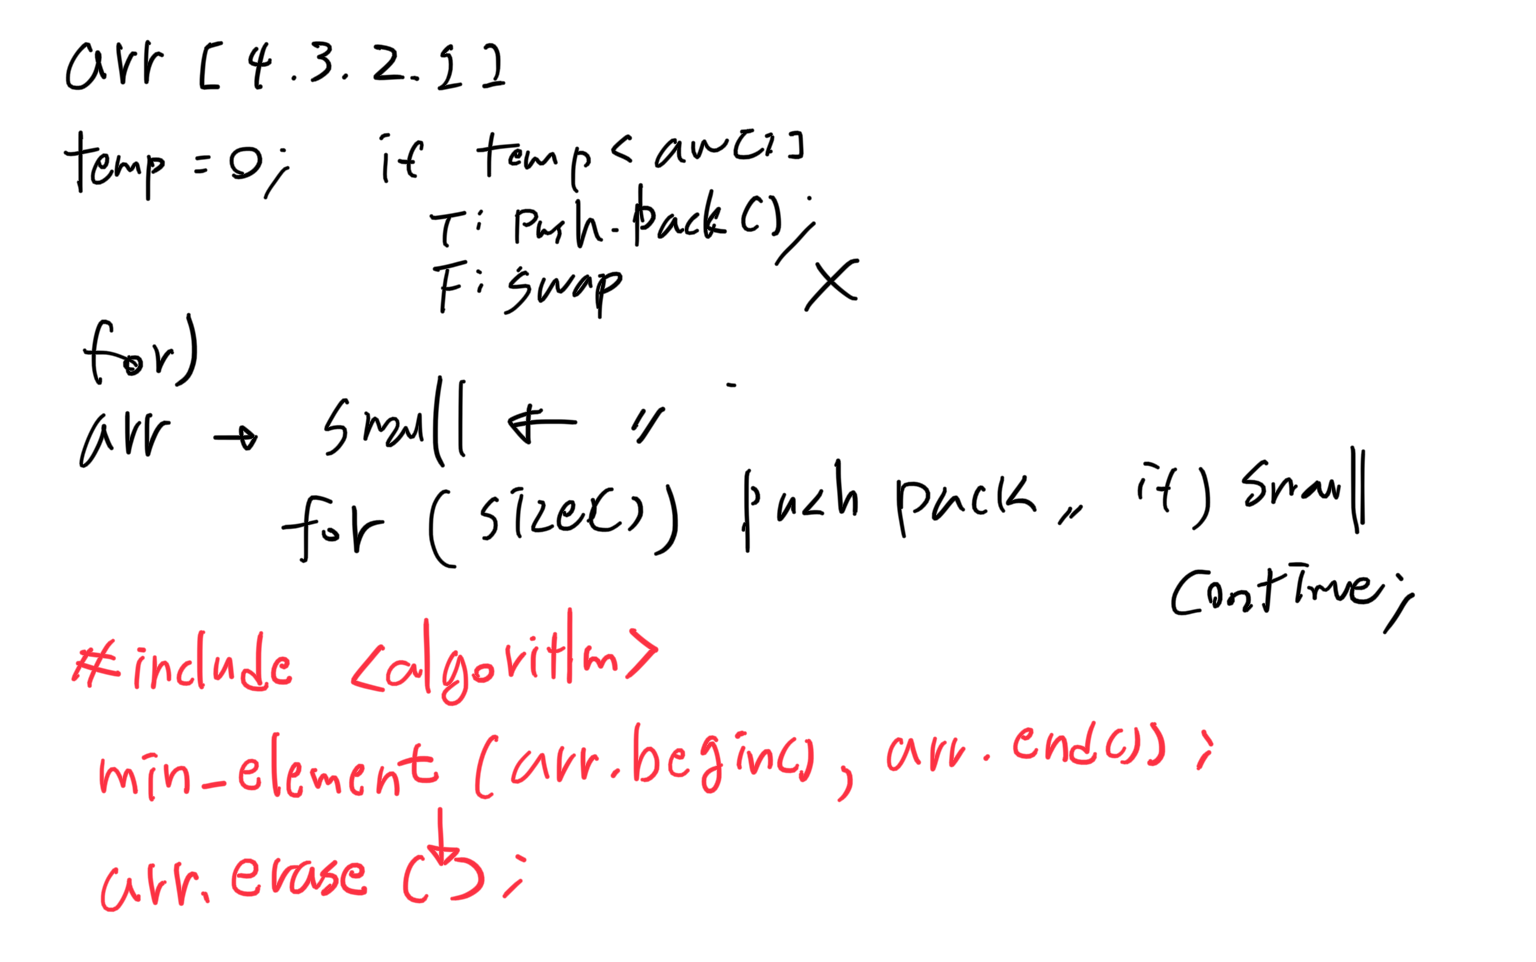 arr [ 4.3.2.1 ]
temp = 0; if temp < arr[i]
T: push.back();
F: swap X
for)
arr → small ← 〃
for (size()) push pack 〃 if) small
continue;
#include <algorithm>
min_element (arr.begin(), arr.end());
arr.erase ( );